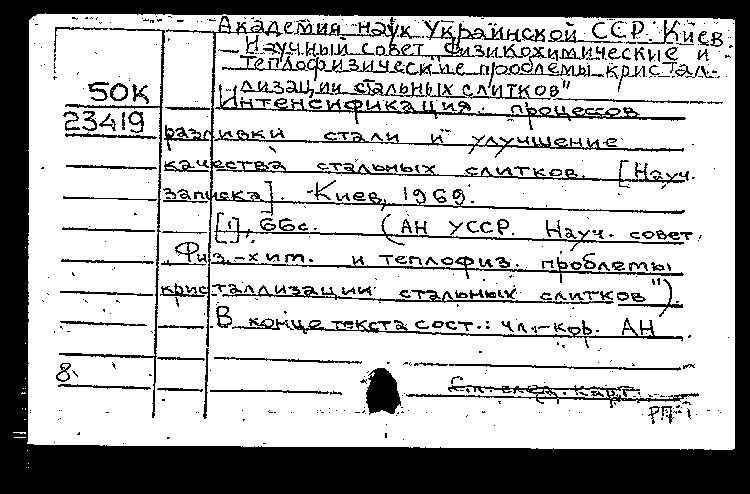 Академия наук Украинской ССР. Киев.
Научный совет „Физикохимические и
теплофизические проблемы кристал-
лизации стальных слитков"
50К
23419
Интенсификация процессов
разливки стали и улучшение
качества стальных слитков. [Науч.
записка]. Киев, 1969.
[1], 66с. (АН УССР. Науч. совет
„Физ.-хим. и теплофиз. проблемы
кристаллизации стальных слитков").
В конце текста сост.: чл.-кор. АН
8.
См. след. карт.
РП-1